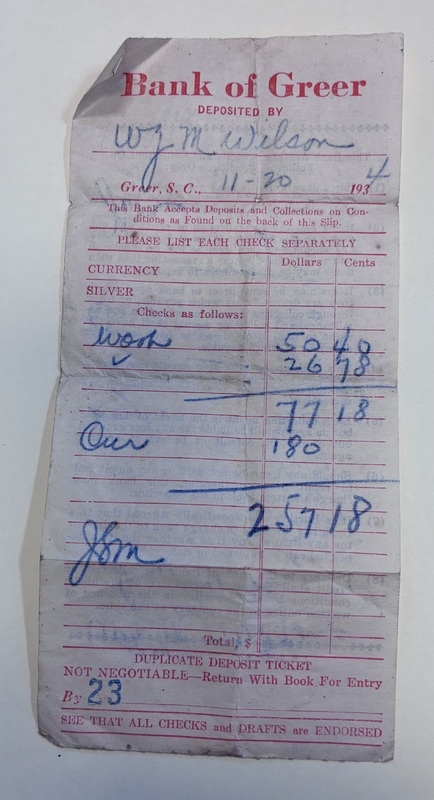 Bank of Greer
DEPOSITED BY
W J M Wilson
Greer, S. C., 11-20 1934
This Bank Accepts Deposits and Collections on Con-
ditions as Found on the back of this Slip.
PLEASE LIST EACH CHECK SEPARATELY
Dollars Cents
CURRENCY
SILVER
Checks as follows:
Wash 50 40
26 78
77 18
Our 180
257 18
Total, $
DUPLICATE DEPOSIT TICKET
NOT NEGOTIABLE—Return With Book For Entry
By 23
SEE THAT ALL CHECKS and DRAFTS are ENDORSED